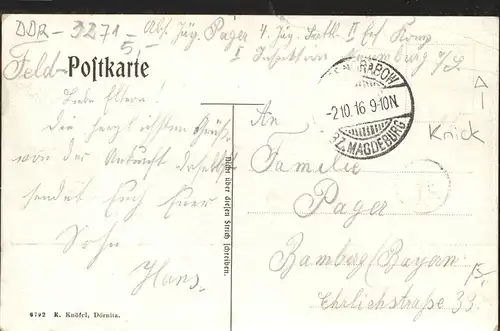 DDR - 3271 -
5,-
Abs. Jäg. Pager 4. Jäg. Ers. II Ers. Komp.
Feld-Postkarte
ENGRABOW
-2.10.16 9-10N.
BZ. MAGDEBURG
Knick
Liebe Eltern!
Die herzlichsten Grüße
von der Ankunft daselbst
sendet Euch Euer
Sohn
Hans.
Nicht über diesen Strich schreiben.
An
Familie
Pager
Bamberg (Bayern
Ehrlichstraße 33.
6792 K. Knöfel, Dörnitz.